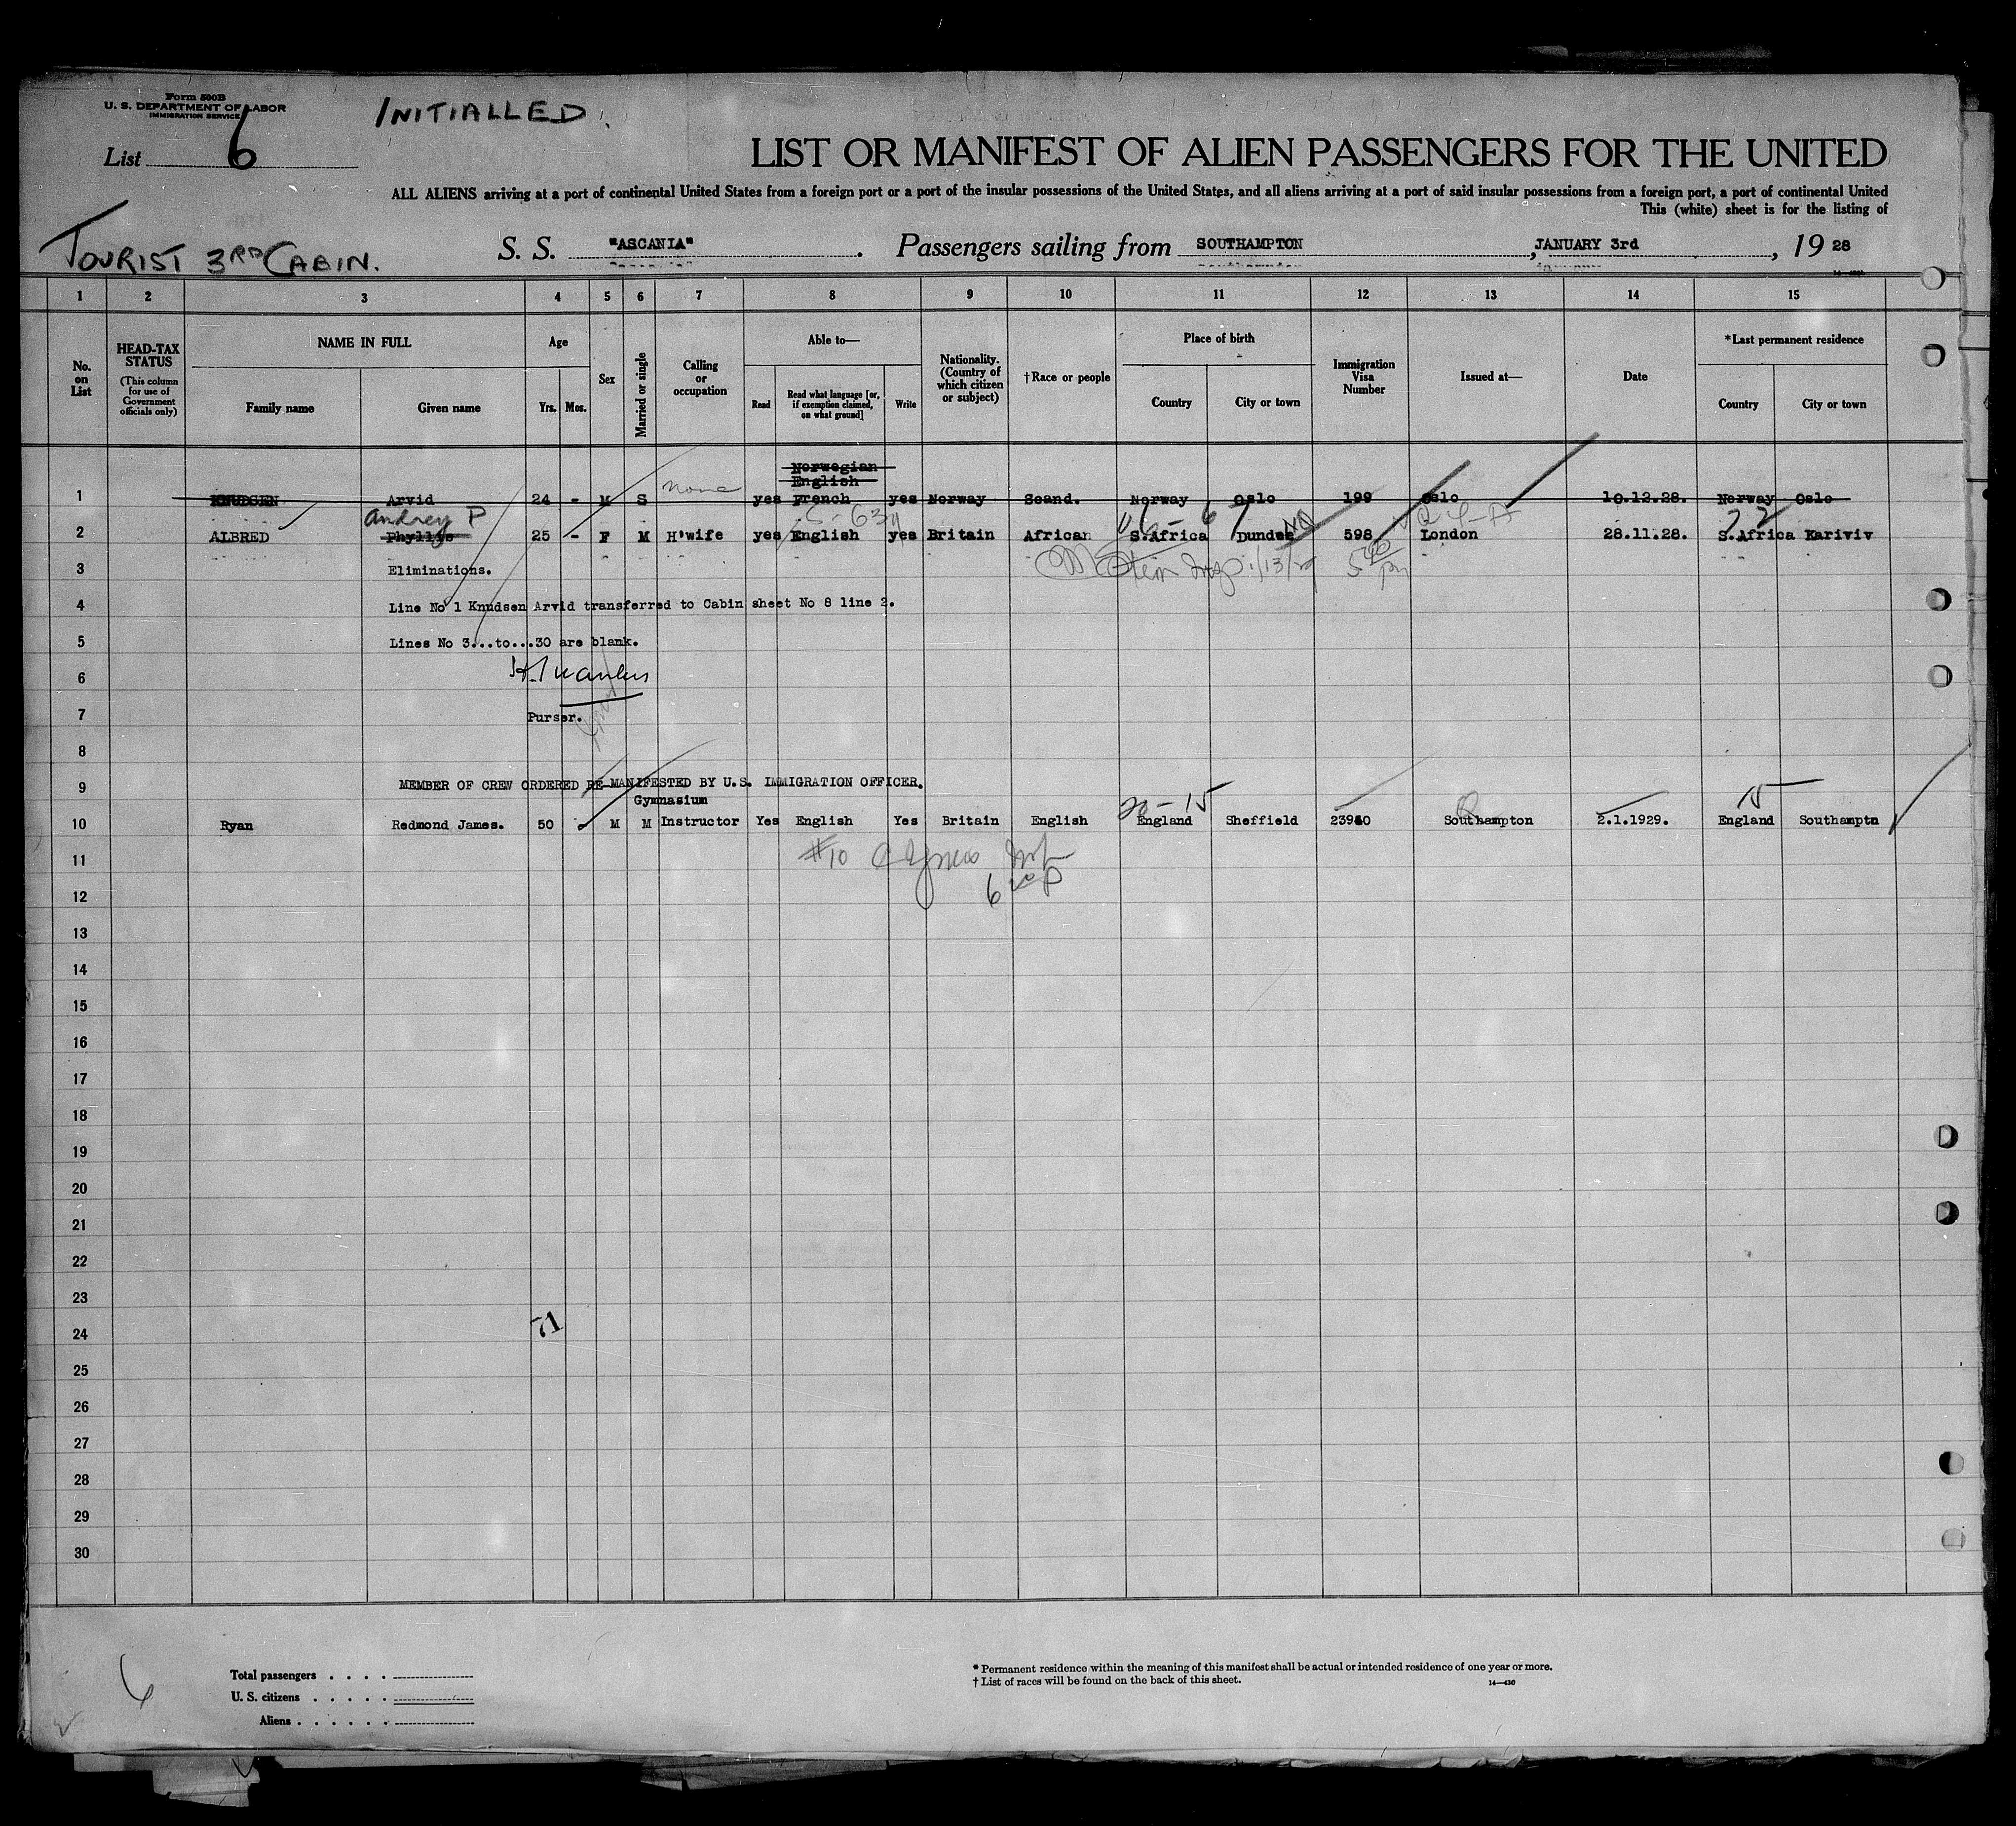 Form 500B
U. S. DEPARTMENT OF LABOR
IMMIGRATION SERVICE
INITIALLED.
List 6
LIST OR MANIFEST OF ALIEN PASSENGERS FOR THE UNITED
ALL ALIENS arriving at a port of continental United States from a foreign port or a port of the insular possessions of the United States, and all aliens arriving at a port of said insular possessions from a foreign port, a port of continental United
This (white) sheet is for the listing of
TOURIST 3RD CABIN.
S. S. "ASCANIA". Passengers sailing from SOUTHAMPTON, JANUARY 3rd, 19 28
1 2 3 4 5 6 7 8 9 10 11 12 13 14 15
No. on List
HEAD-TAX STATUS
(This column for use of Government officials only)
NAME IN FULL
Family name
Given name
Age
Yrs. Mos.
Sex
Married or single
Calling or occupation
Able to—
Read
Read what language [or, if exemption claimed, on what ground]
Write
Nationality. (Country of which citizen or subject)
†Race or people
Place of birth
Country
City or town
Immigration Visa Number
Issued at—
Date
*Last permanent residence
Country
City or town
Norwegian
English
1 KNUDSEN Arvid 24 - M S none yes French yes Norway Scand. Norway Oslo 199 Oslo 10.12.28. Norway Oslo
Audrey P
2 ALBRED Phyllys 25 - F M H'wife yes English yes Britain African S.Africa Dundee 598 London 28.11.28. S.Africa Kariviv
3 Eliminations.
4 Line No 1 Knudsen Arvid transferred to Cabin sheet No 8 line 2.
5 Lines No 3...to...30 are blank.
6
7 Purser.
8
9 MEMBER OF CREW ORDERED RE-MANIFESTED BY U.S. IMMIGRATION OFFICER.
Gymnasium
20-15 15
10 Ryan Redmond James. 50 M M Instructor Yes English Yes Britain English England Sheffield 23940 Southampton 2.1.1929. England Southamptn
11 #10
12
13
14
15
16
17
18
19
20
21
22
23
24 71
25
26
27
28
29
30
6
Total passengers . . . .
U. S. citizens . . . . .
Aliens . . . . . .
* Permanent residence within the meaning of this manifest shall be actual or intended residence of one year or more.
† List of races will be found on the back of this sheet.
14—430